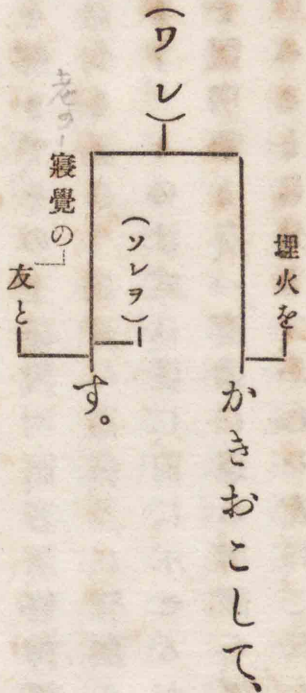 (ワレ)
埋火を
かきおこして、
(ソレヲ)
老の
寢覺の
友と
す。